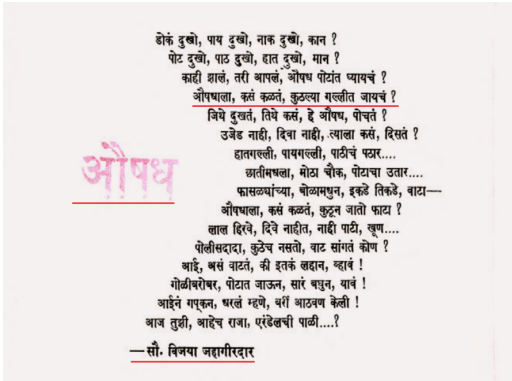 डोकं दुखो, पाय दुखो, नाक दुखो, कान ?
पोट दुखो, पाठ दुखो, हात दुखो, मान ?
काही झालं, तरी आपलं, औषध पोटांत घ्यायचं ?
औषधाला, कसं कळतं, कुठल्या गल्लीत जायचं ?
जिथे दुखतं, तिथे कसं, हे औषध, पोचतं ?
उजेड नाही, दिवा नाही, त्याला कसं, दिसतं ?
हातगल्ली, पायगल्ली, पाठीचं पठार....
छातीमधला, मोठा चौक, पोटाचा उतार....
फासळ्यांच्या, बोळामधुन, इकडे तिकडे, वाटा—
औषध
औषधाला, कसं कळतं, कुठून जातो फाटा ?
लाल हिरवे, दिवे नाहीत, नाही पाटी, खूण....
पोलीसदादा, कुठेच नसतो, वाट सांगतं कोण ?
आई, असं वाटतं, की इतकं लहान, व्हावं !
गोळीबरोबर, पोटात जाऊन, सारं बघुन, यावं !
आईनं गप्‌कन, धरलं म्हणे, बरी आठवण केली !
आज तुझी, आहेच राजा, एरंडेलची पाळी....?
—सौ. विजया जहागीरदार